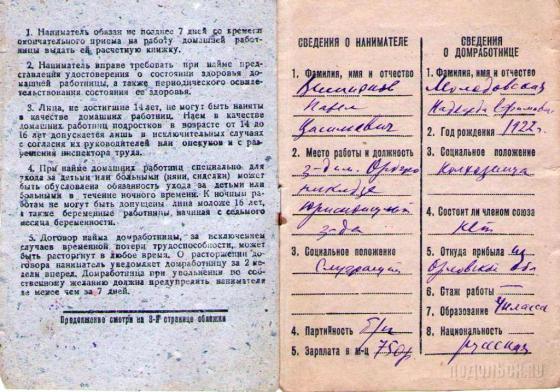 1. Наниматель обязан не позднее 7 дней со времени
окончательного приема на работу домашней работ-
ницы выдать ей расчетную книжку.
2. Наниматель вправе требовать при найме пред-
ставления удостоверения о состоянии здоровья домаш-
ней работницы, а также периодического освидетель-
ствования состояния ее здоровья.
3. Лица, не достигшие 14 лет, не могут быть наняты
в качестве домашних работниц. Наем в качестве
домашних работниц подростков в возрасте от 14 до
16 лет допускается лишь в исключительных случаях
с согласия их руководителей или опекунов и с раз-
решения инспектора труда.
4. При найме домашних работниц специально для
ухода за детьми или больными (няни, сиделки) может
быть обусловлена обязанность ухода за детьми или
больными в течение ночного времени. К ночным ра-
ботам не могут быть допущены лица моложе 16 лет,
а также беременные работницы, начиная с седьмого
месяца беременности.
5. Договор найма домработницы, за исключением
случаев временной потери трудоспособности, может
быть расторгнут в любое время. О расторжении до-
говора наниматель уведомляет домработницу за 2 не-
дели вперед. Домработница при увольнении по соб-
ственному желанию должна предупредить нанимателя
не менее чем за 7 дней.
Продолжение смотри на 3-й странице обложки
СВЕДЕНИЯ О НАНИМАТЕЛЕ
1. Фамилия, имя и отчество
Павел
2. Место работы и должность
з-д им. Орджо
никидзе
з-да
3. Социальное положение
Служащий
4. Партийность б/п
5. Зарплата в м-ц 750р
СВЕДЕНИЯ
О ДОМРАБОТНИЦЕ
1. Фамилия, имя и отчество
Надежда
2. Год рождения 1922 г.
3. Социальное положение
Колхозница
4. Состоит ли членом союза
нет
5. Откуда прибыла из
Орловской обл
6. Стаж работы —
7. Образование 4 класса
8. Национальность
русская
подольск.ru